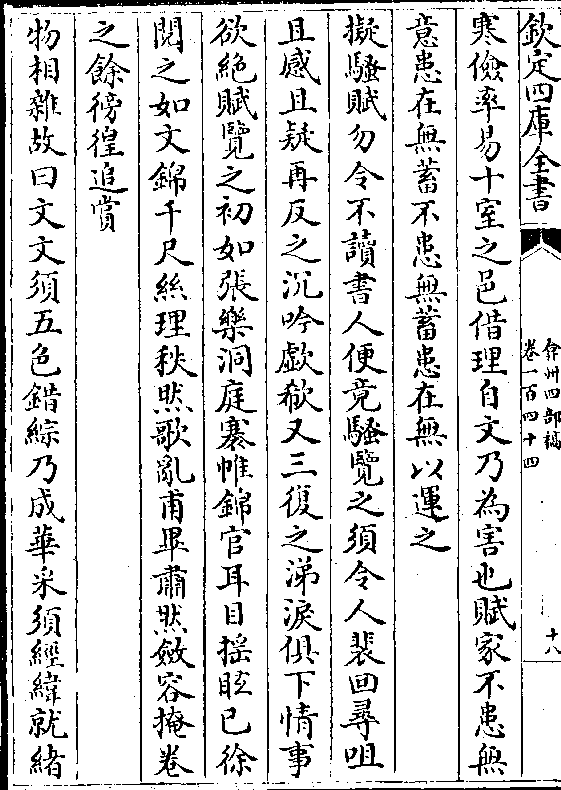 欽定四庫全書
弇州四部稿
卷一百四十四
十八
寒儉率易十室之邑借理自文乃為害也賦家不患無
意患在無蓄不患無蓄患在無以運之
擬騷賦勿令不讀書人便竟騷覽之須令人裴回尋咀
且感且疑再反之沉吟歔欷又三復之涕淚俱下情事
欲絶賦覽之初如張樂洞庭褰帷錦官耳目揺眩已徐
閱之如文錦千尺絲理秩然歌亂甫畢肅然斂容掩卷
之餘徬徨追賞
物相雜故曰文文須五色錯綜乃成華采須經緯就緒